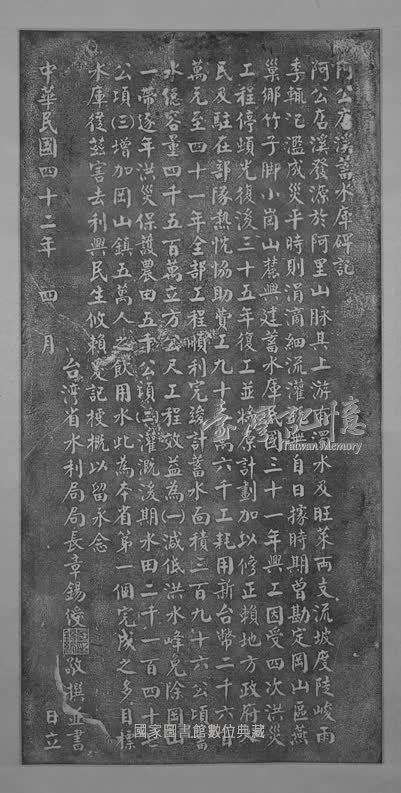 阿公店溪蓄水庫碑記
阿公店溪發源於阿里山脉其上游有濁水及旺萊兩支流坡度陡峻雨
季輒氾濫成災平時則涓滴細流灌溉無自日據時期曾勘定岡山區燕
巢鄉竹子脚小崗山麓興建蓄水庫民國三十一年興工因受四次洪災
工程停頓光復後三十五年復工並將原計劃加以修正賴地方政府人
民及駐在部隊熱忱協助費工九十萬六千工耗用新台幣二千六百
萬元至四十一年全部工程順利完竣計蓄水面積三百九十六公頃蓄
水總容量四千五百萬立方公尺工程效益為㈠減低洪水峰免除岡山
一帶逐年洪災保護農田五千公頃㈡灌溉後期水田二千一百四十七
公頃㈢增加岡山鎮五萬人之飲用水此為本省第一個完成之多目標
水庫從茲害去利興民生攸賴爰記梗概以留永念
台灣省水利局局長章錫綬敬撰並書
中華民國四十二年 四月 日立
臺灣記憶
Taiwan Memory
國家圖書館數位典藏